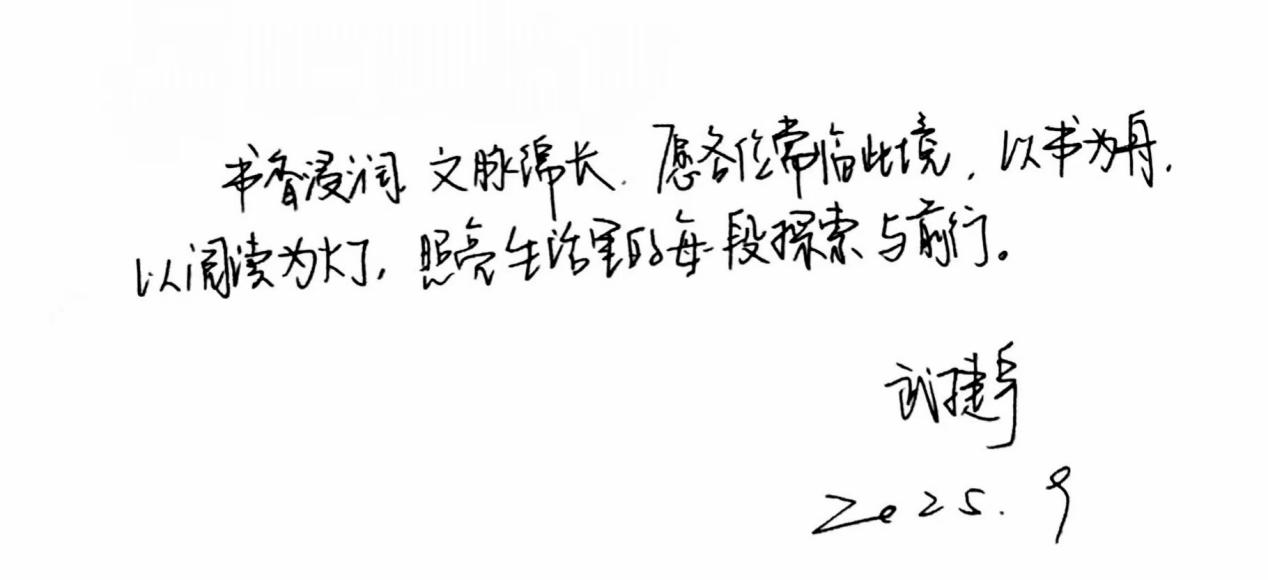 书香浸润.文脉绵长.愿各位常临此境,以书为舟,
以阅读为灯,照亮生活里的每段探索与前行。
武捷
2025.9